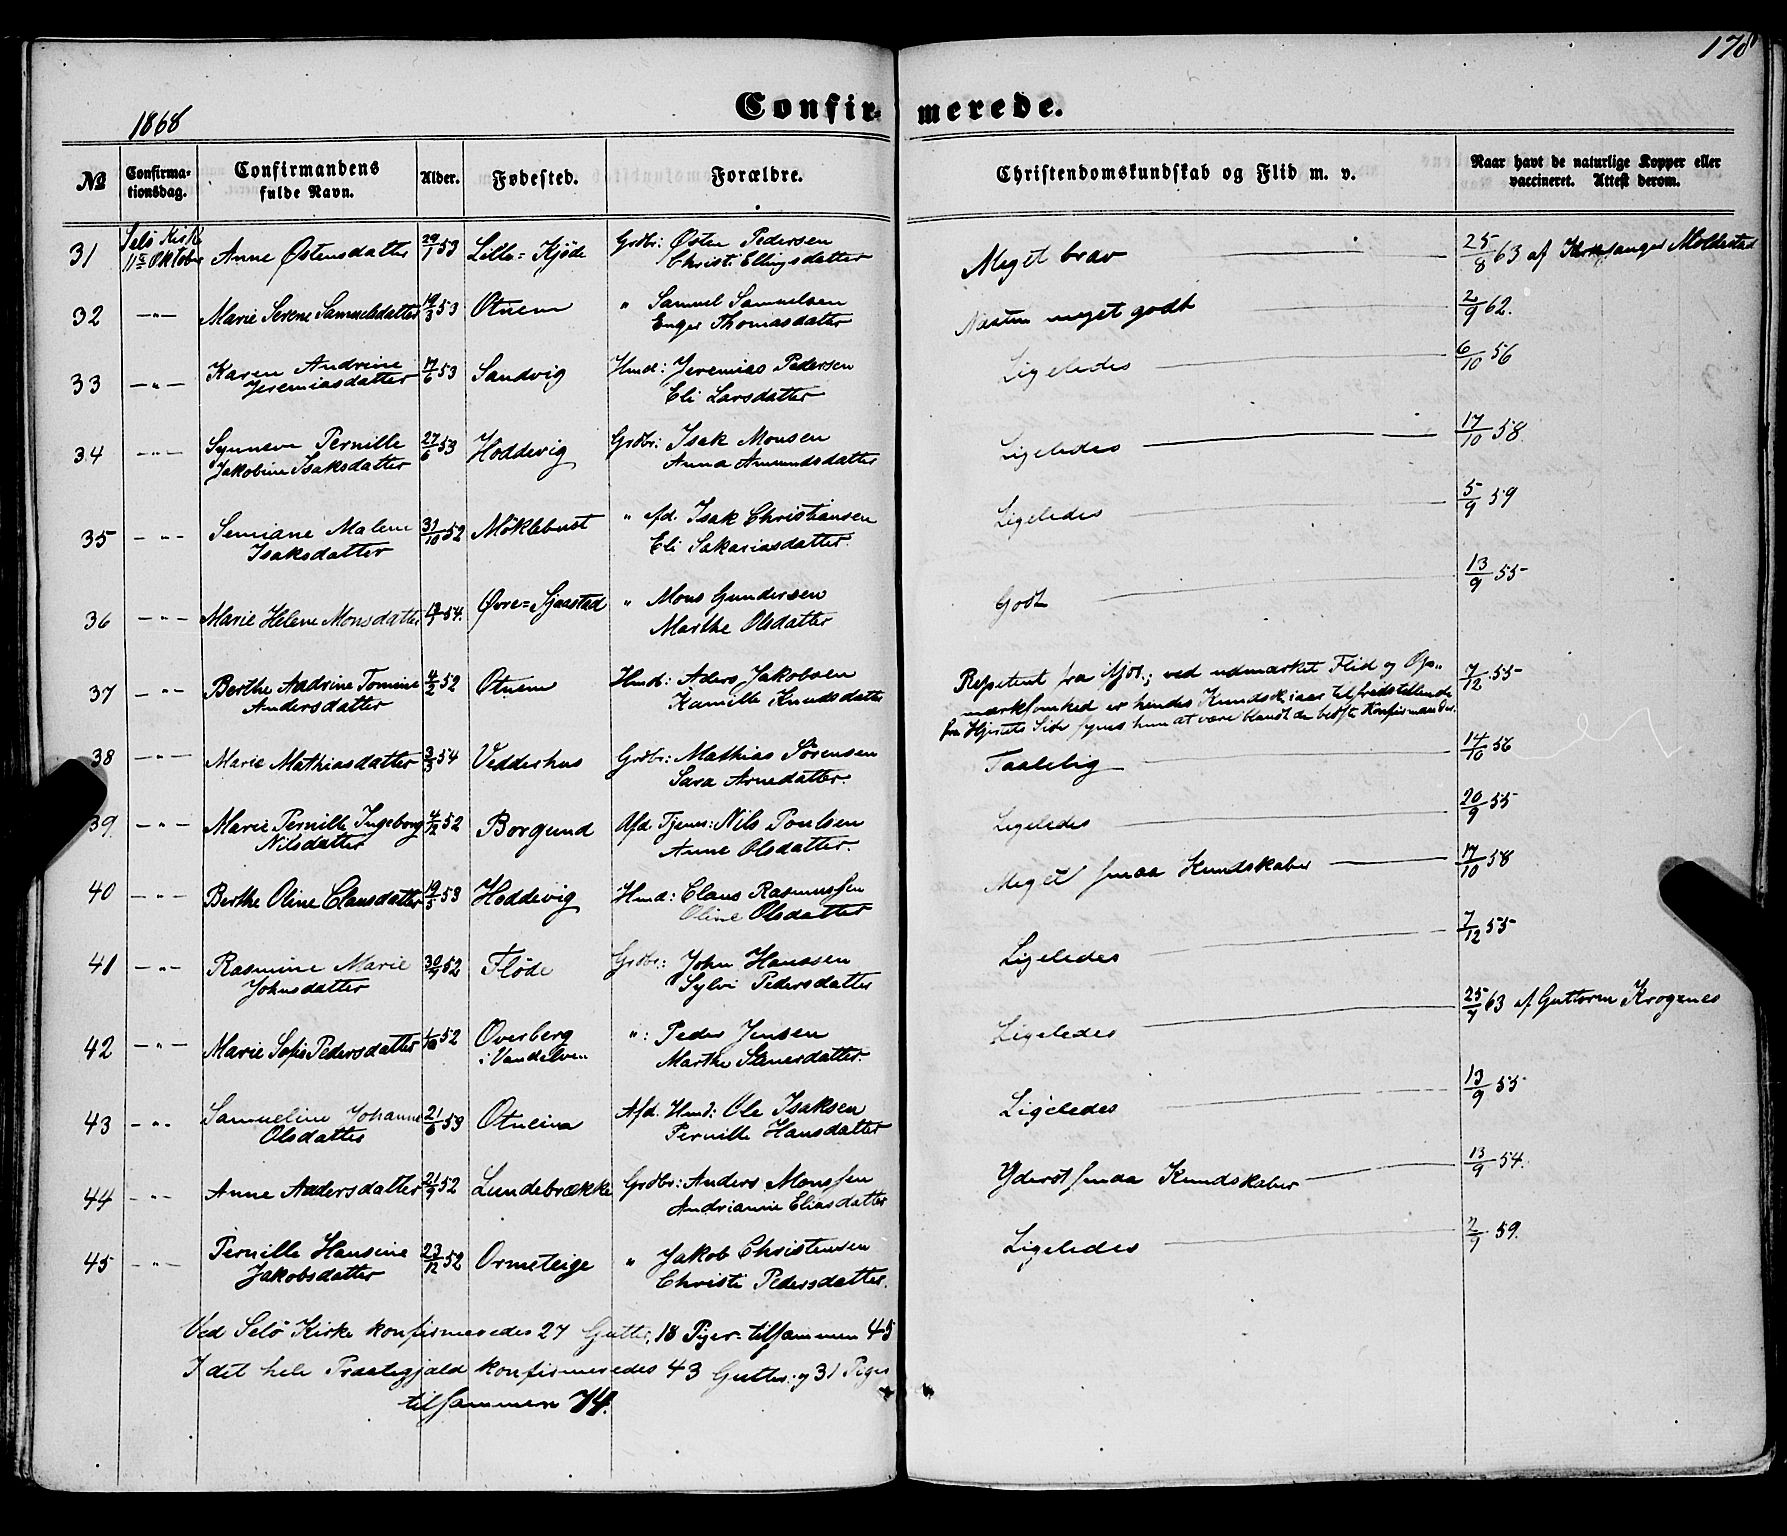 178
1868
Confir- merede.
No
Confirma-
tionsdag.
Confirmandens
fulde Navn.
Alder.
Fødested.
Forældre.
Christendomskundskab og Flid m. v.
Naar havt de naturlige Kopper eller
vaccineret. Attest derom.
31 Selø Kirke 11te Oktober Anne Østensdatter 29/1 53 Lille=Kjøde Grdbr: Østen Pedersen
Christi Ellingsdatter
Meget brav 25/8 63 af Moldestad
32 —"— Marie Serene Samuelsdatter 19/3 53 Otnem " Samuel Samuelsen
Enger Thomasdatter
Næsten meget godt 2/9 62.
33 —"— Karen Andrine
Jeremiasdatter 17/6 53 Sandvig Hmd: Jeremias Pedersen
Eli Larsdatter
Ligeledes 6/10 56
34 —"— Synneve Pernille
Jakobine Isaksdatter 27/6 53 Hoddevig Grdbr: Isak Monsen
Anna Amundsdatter
Ligeledes 17/10 58
35 —"— Semiane Malene
Isaksdatter 31/10 52 Møklebust " Afd. Isak Christiansen
Eli Sakariasdatter.
Ligeledes 5/9 59
36 —"— Marie Helene Monsdatter 54. Øvre= " Mons Gundersen
Marthe Olsdatter
Godt 13/9 55
37 —"— Berthe Andrine Tomine
Andersdatter 4/2 52 Otnem Hmd: Anders Jakobsen
Kamille Knudsdatter
Repetent fra ifjor.; ved udmærket Flid og Op-
mærksomhed er hendes Kundsk. iaar tilfredstillende
fra Hjertets Side synes hun at være blandt de bedste Konfirmander.
7/12 55
38 —"— Marie Mathiasdatter 3/3 54 Vedderhus Grdbr: Mathias Sørensen
Sara Arnedatter.
Taalelig 14/10 56
39. —"— Marie Pernille Ingeborg
Nilsdatter 4/12 52 Borgund Afd. Tjener: Nils Poulsen
Anne Olsdatter.
Ligeledes 20/9 55
40 —"— Berthe Oline Clausdatter 19/5 53 Hoddevig Hmd: Claus Rasmussen
Oline Olsdatter
Meget smaa Kundskaber 17/10 58
41 —"— Rasmine Marie
Johnsdatter 30/9 52 Fløde Grdbr: John Hanssen
Sylvi Pedersdatter
Ligeledes 7/12 55
42 —"— Marie Sofie Pedersdatter 1/10 52 Overberg
i Vandelven ": Peder Jensen
Marthe Stenersdatter.
Ligeledes 25/7 63 af Guttorm Krogenes
43 —"— Samueline Johanne
Olsdatter 21/6 53 Otneim Afd. Hmd: Ole Isaksen
Pernille Hansdatter
Ligeledes 13/9 55
44 —"— Anne Andersdatter 21/9 52 Lundebrække Grdbr: Anders Monssen
Andrianne Eliasdatter
Yderst smaa Kundskaber 13/9 54.
45 —"— Pernille Hansine
Jakobsdatter 23/12 52 Ormeteige " Jakob Christensen
Christi Pedersdatter.
Ligeledes 7/9 59.
Ved Selø Kirke konfirmeredes 27 Gutter, 18 Piger. tilsammen 45
I det hele Præstegjæld konfirmeredes 43 Gutter og 31 Piger
tilsammen 74.